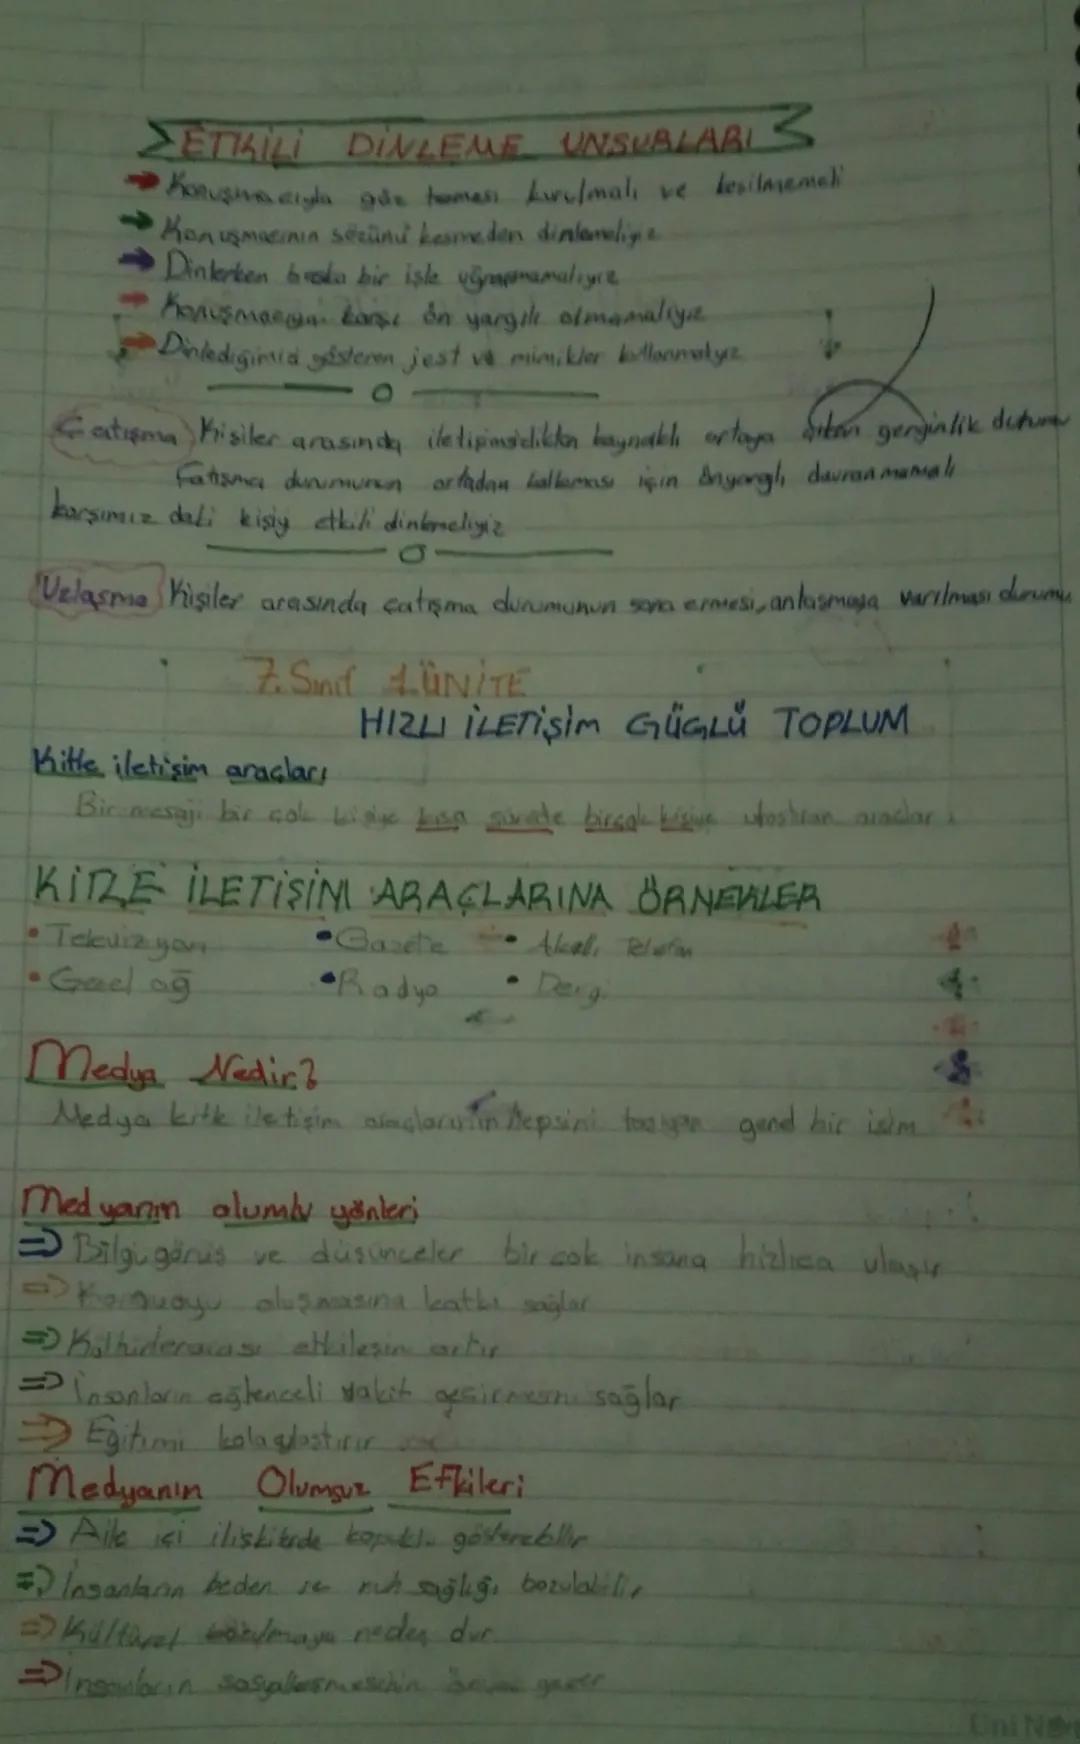 ETKİLİ DİNLEME UNSURLARI
Konuşmacıyla göz teması kurulmalı ve kesilmemeli
Konuşmacının sözünü kesmeden dinlemeliyiz
Dinlerken başka bir işle uğraşmamalıyız
Konuşmacıya karşı ön yargılı olmamalıyız
Dinlediğimizi gösteren jest ve mimikler kullanmalıyız
Çatışma Kişiler arasında iletişimsizlikten kaynaklı ortaya çıkan gerginlik durumu
Çatışma durumunun ortadan kalkması için önyargılı davranmamalı
karşımız daki kişiyi etkili dinlemeliyiz
Uzlaşma Kişiler arasında çatışma durumunun sona ermesi, anlaşmaya varılması durumu
7. Sınıf 1.ÜNİTE
HIZLI İLETİŞİM GÜÇLÜ TOPLUM
Kitle iletişim araçları
Bir mesajı bir çok kişiye kısa sürede birçok kişiye ulaştıran araçlar
KİTLE İLETİŞİM ARAÇLARINA ÖRNEKLER
• Televizyon • Gazete • Akıllı Telefon
• Genel ağ • Radyo • Dergi
Medya Nedir?
Medya kitle iletişim araçlarının hepsini taşıyan genel bir isim
Medyanın olumlu yönleri
⇒ Bilgi görüş ve düşünceler bir çok insana hızlıca ulaşır
⇒ Kamuoyu oluşmasına katkı sağlar
⇒ etkileşim artır
⇒ İnsanların eğlenceli vakit geçirmesini sağlar
⇒ Eğitimi kolaylaştırır
Medyanın Olumsuz Etkileri
⇒ Aile içi ilişkilerde gösterebilir
⇒ İnsanların beden ve ruh sağlığı bozulabilir
⇒ Kültürel bozulmaya neden dur
⇒ İnsanların geçer
Uni